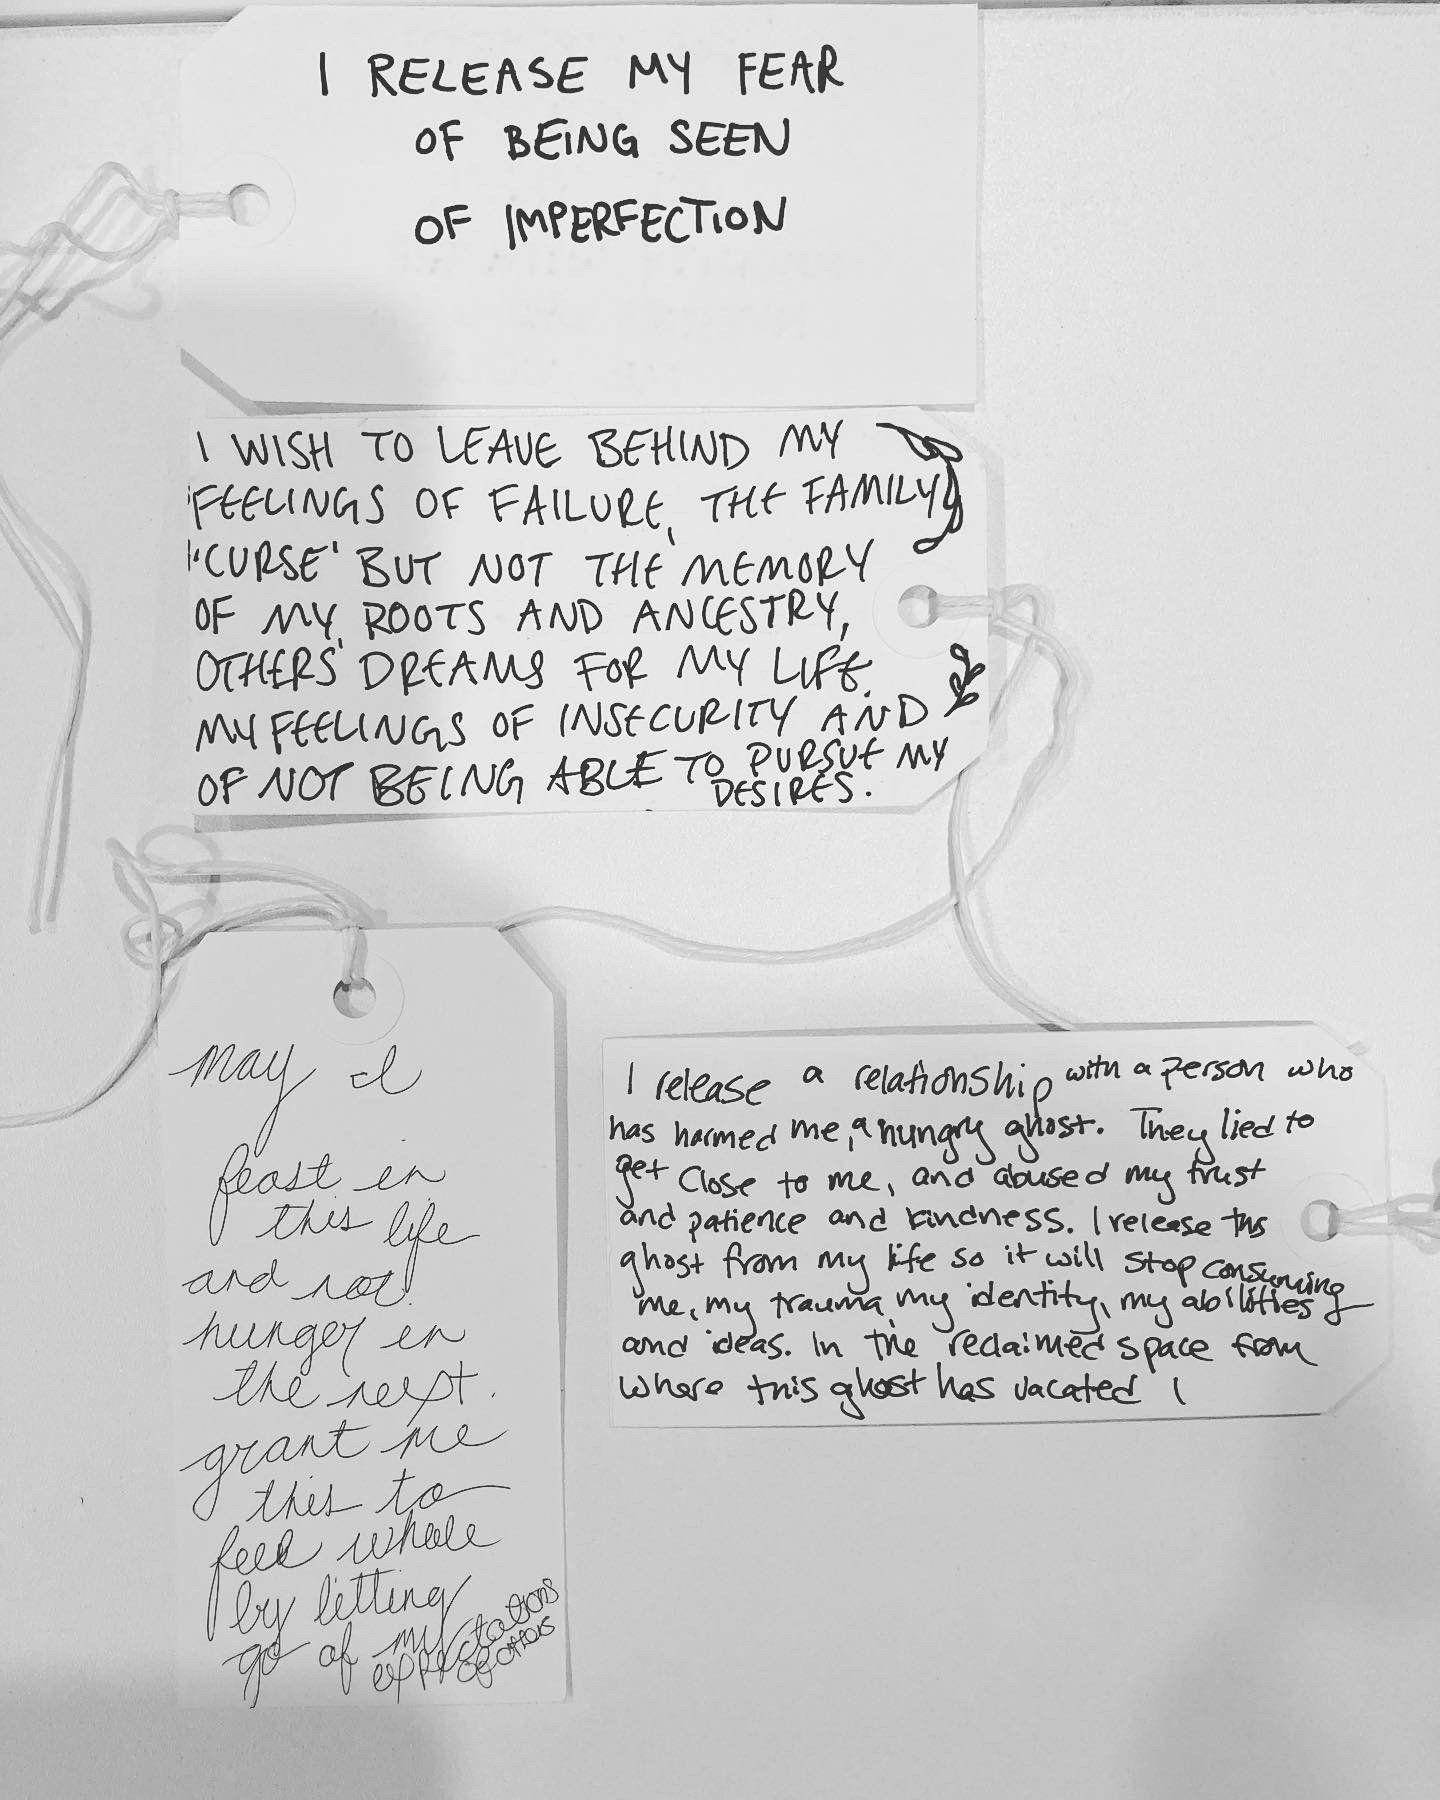 I RELEASE MY FEAR
OF BEING SEEN
OF IMPERFECTION
I WISH TO LEAVE BEHIND MY
FEELINGS OF FAILURE, THE FAMILY
'CURSE' BUT NOT THE MEMORY
OF MY ROOTS AND ANCESTRY,
OTHERS' DREAMS FOR MY LIFE.
MY FEELINGS OF INSECURITY AND
OF NOT BEING ABLE TO PURSUE MY
DESIRES.
may I
feast in
this life
and not
hunger in
the next.
grant me
this to
feel whole
by letting
go of my
expectations
of others
I release a relationship with a person who
has harmed me, a hungry ghost. They lied to
get close to me, and abused my trust
and patience and kindness. I release this
ghost from my life so it will stop consuming
me, my trauma, my identity, my abilities
and ideas. In the reclaimed space from
where this ghost has vacated I